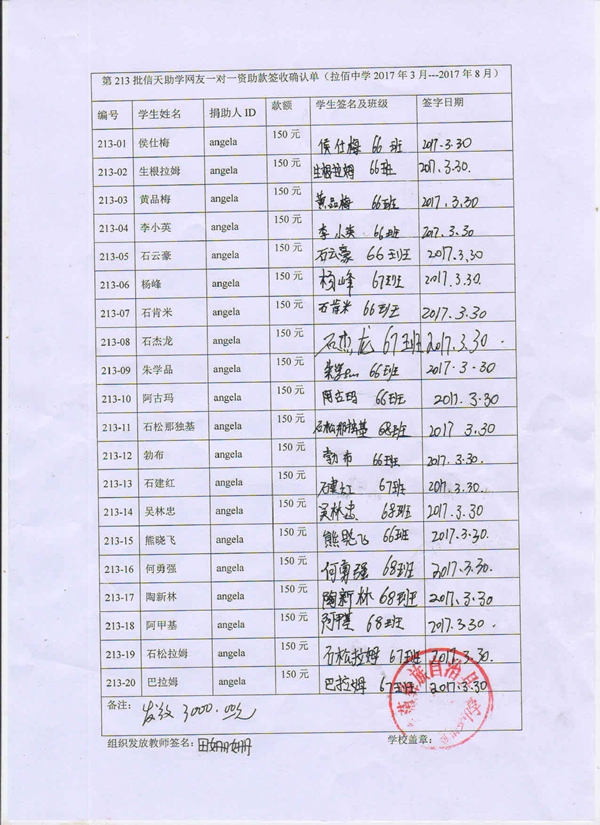 第 213 批信天助学网友一对一资助款签收确认单（拉佰中学 2017 年 3 月---2017 年 8 月）
编号 学生姓名 捐助人 ID 款额 学生签名及班级 签字日期
213-01 侯仕梅 angela 150 元 侯仕梅 66 班 2017.3.30
213-02 生根拉姆 angela 150 元 生根拉姆 66班 2017.3.30.
213-03 黄品梅 angela 150 元 黄品梅 66班 2017.3.30.
213-04 李小英 angela 150 元 李小英 66班 2017.3.30.
213-05 石云豪 angela 150 元 石云豪 66班 2017.3.30
213-06 杨峰 angela 150 元 杨峰 67班 2017.3.30.
213-07 石肯米 angela 150 元 石肯米 66班 2017.3.30
213-08 石杰龙 angela 150 元 石杰龙 67班 2017.3.30.
213-09 朱学品 angela 150 元 朱学品 66班 2017.3.30
213-10 阿古玛 angela 150 元 阿古玛 66班 2017.3.30
213-11 石松那独基 angela 150 元 石松那独基 68班 2017 3.30
213-12 勃布 angela 150 元 勃布 66班 2017.3.30.
213-13 石建红 angela 150 元 石建红 67班 2017.3.30.
213-14 吴林忠 angela 150 元 吴林忠 68班 2017.3.30
213-15 熊晓飞 angela 150 元 熊晓飞 66班 2017.3.30.
213-16 何勇强 angela 150 元 何勇强 68班 2017.3.30.
213-17 陶新林 angela 150 元 陶新林 68班 2017.3.30
213-18 阿甲基 angela 150 元 阿甲基 68班 2017.3.30
213-19 石松拉姆 angela 150 元 石松拉姆 67班 2017.3.30.
213-20 巴拉姆 angela 150 元 巴拉姆 67班 2017.3.30
备注： 发放 3000.00元
组织发放教师签名： 田姗姗 学校盖章：
族自治